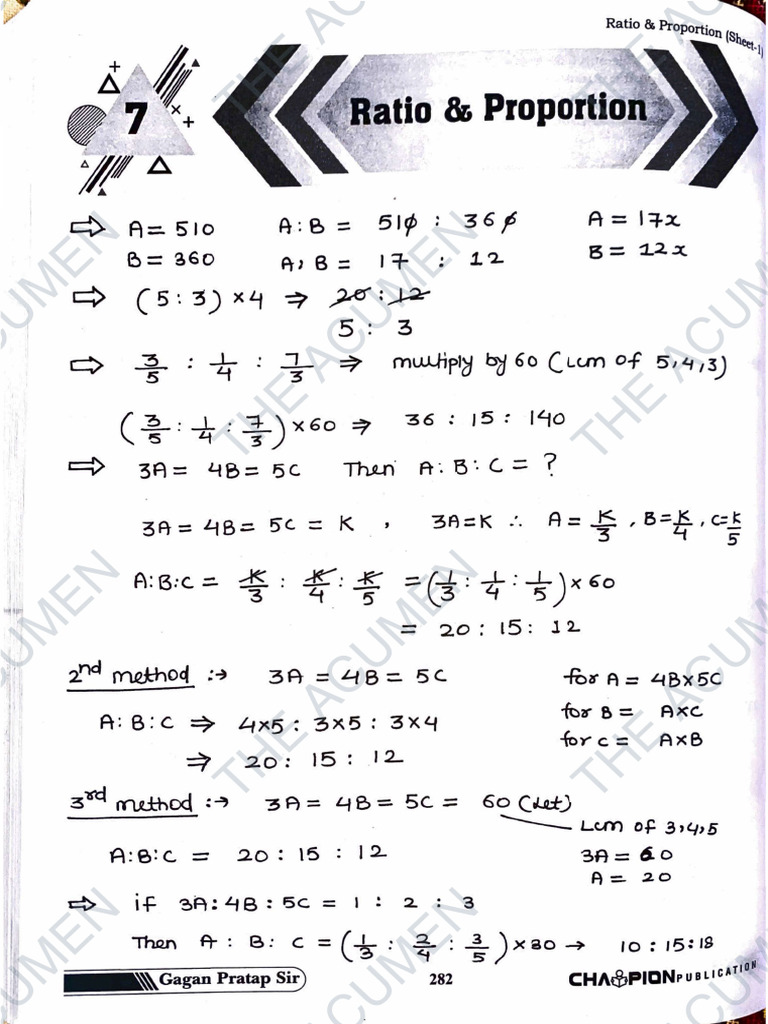 Ratio & Proportion (Sheet-1)
7
Ratio & Proportion
⇒ A = 510 A:B = 510 : 360 A = 17x
B = 360 A:B = 17 : 12 B = 12x
⇒ (5 : 3) × 4 ⇒ 20 : 12
5 : 3
⇒ 3/5 : 1/4 : 7/3 ⇒ multiply by 60 (Lcm of 5,4,3)
(3/5 : 1/4 : 7/3) × 60 ⇒ 36 : 15 : 140
⇒ 3A = 4B = 5C Then A:B:C = ?
3A = 4B = 5C = K , 3A=K ∴ A = K/3 , B=K/4 , C=K/5
A:B:C = K/3 : K/4 : K/5 = (1/3 : 1/4 : 1/5) × 60
= 20 : 15 : 12
2nd method :→ 3A = 4B = 5C for A = 4B×5C
A:B:C ⇒ 4×5 : 3×5 : 3×4 for B = A×C
⇒ 20 : 15 : 12 for C = A×B
3rd method :→ 3A = 4B = 5C = 60 (Let)
Lcm of 3,4,5
A:B:C = 20 : 15 : 12 3A = 60
A = 20
⇒ if 3A:4B:5C = 1 : 2 : 3
Then A : B : C = (1/3 : 2/4 : 3/5) × 30 → 10 : 15 : 18
Gagan Pratap Sir 282 CHAMPION PUBLICATION
THE ACUMEN